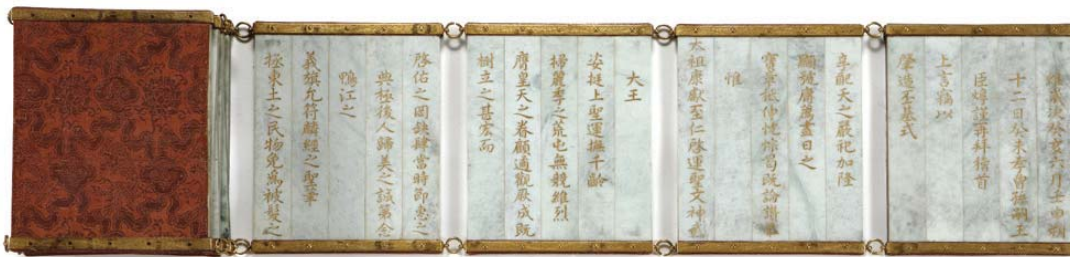 維歲次癸亥六月壬申朔
十二日癸未孝曾孫嗣王
臣焞謹再拜稽首
上言竊以
肇造丕基式
享配天之嚴祀加隆
顯號庸
日之
惟
太祖康獻至仁啓運聖文神武
大王
姿挺上聖運撫千齡
掃麗季之荒屯無競維烈
膺皇天之眷顧遹觀厥成旣
樹立之甚宏而
啓佑之罔缺肆當時節惠之
典極後人歸美之誠第念
鴨江之
義旗允符麟經之聖筆
拯東土之民物免爲被髮之